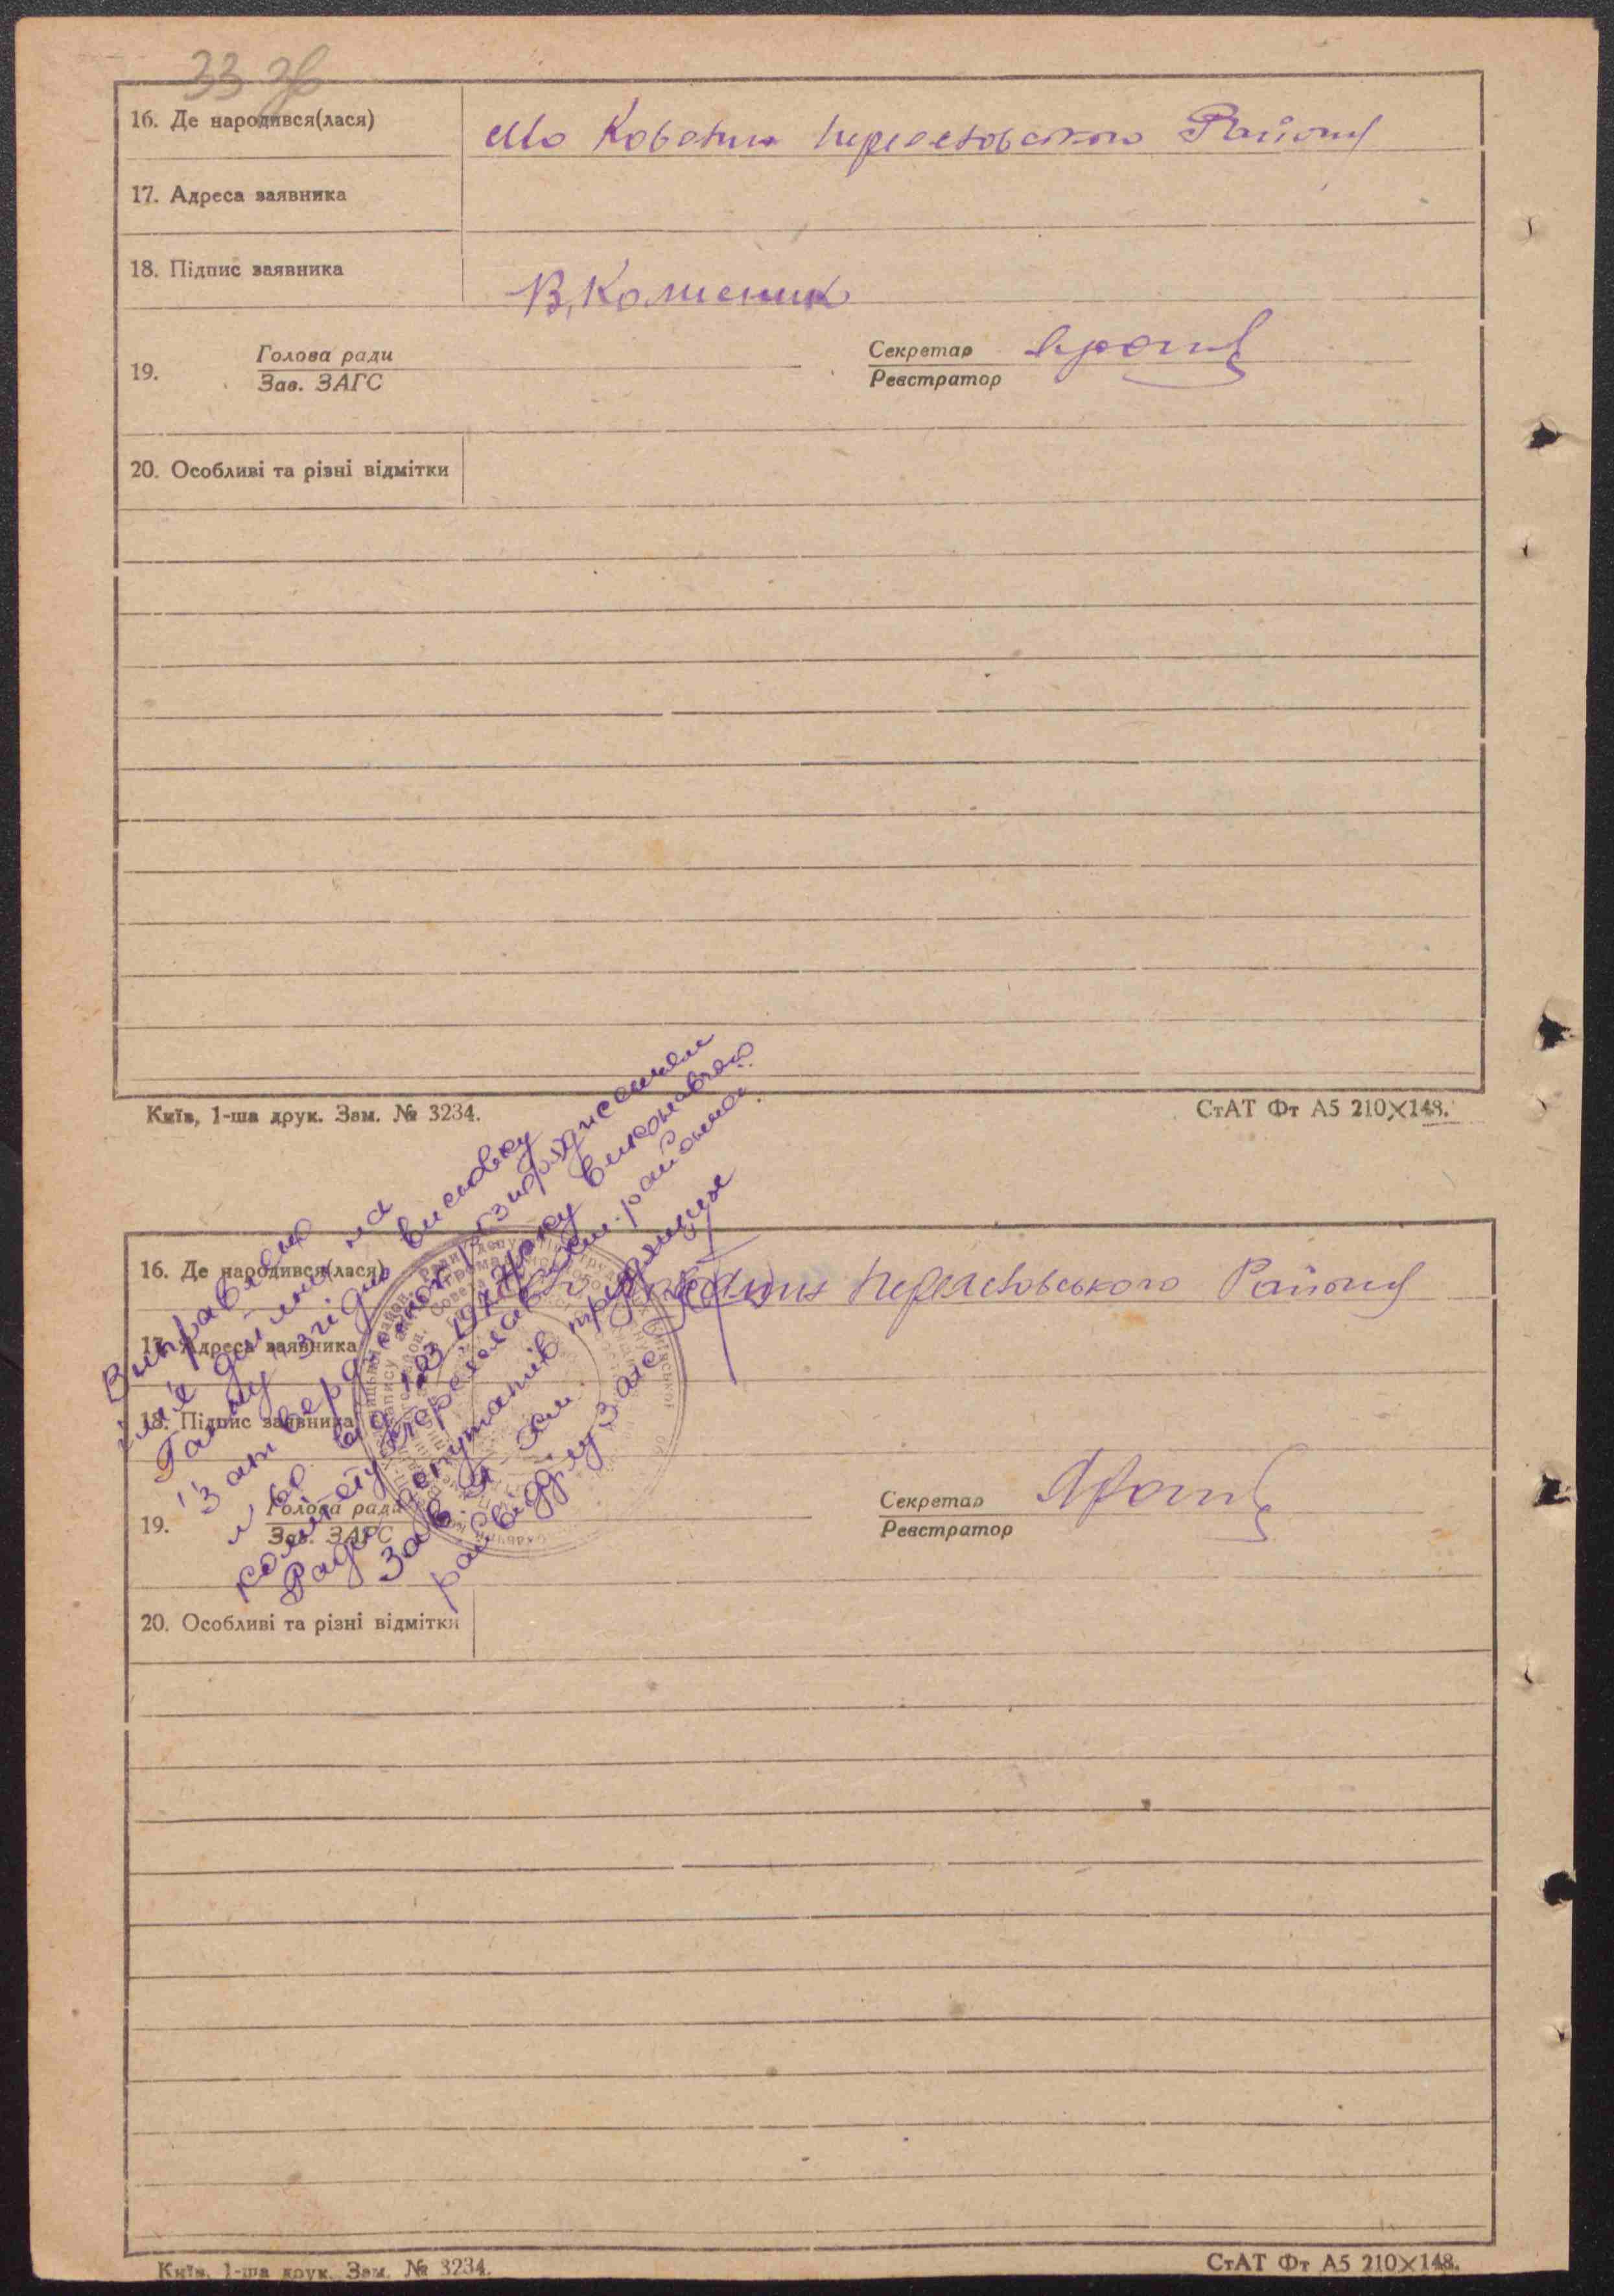 33 зв
16. Де народився(лася)
Ковалин Переяславського Району
17. Адреса заявника
18. Підпис заявника
В. Колісник
19. Голова ради
Зав. ЗАГС
Секретар
Реєстратор
20. Особливі та різні відмітки
Київ, 1-ша друк. Зам. № 3234.
СтАТ Фт А5 210×148.
16. Де народився(лася)
Переяславського Району
17. Адреса заявника
18. Підпис заявника
19. Голова ради
Зав. ЗАГС
Секретар
Реєстратор
20. Особливі та різні відмітки
Виправлено
ім'я дитини на
Ганну згідно висновку
затвердженого розпорядженням
виконавчого
комітету Переяслав-Хм. районної
Ради депутатів трудящих
Зав.
райвідділу Загс
Київ, 1-ша друк. Зам. № 3234.
СтАТ Фт А5 210×148.